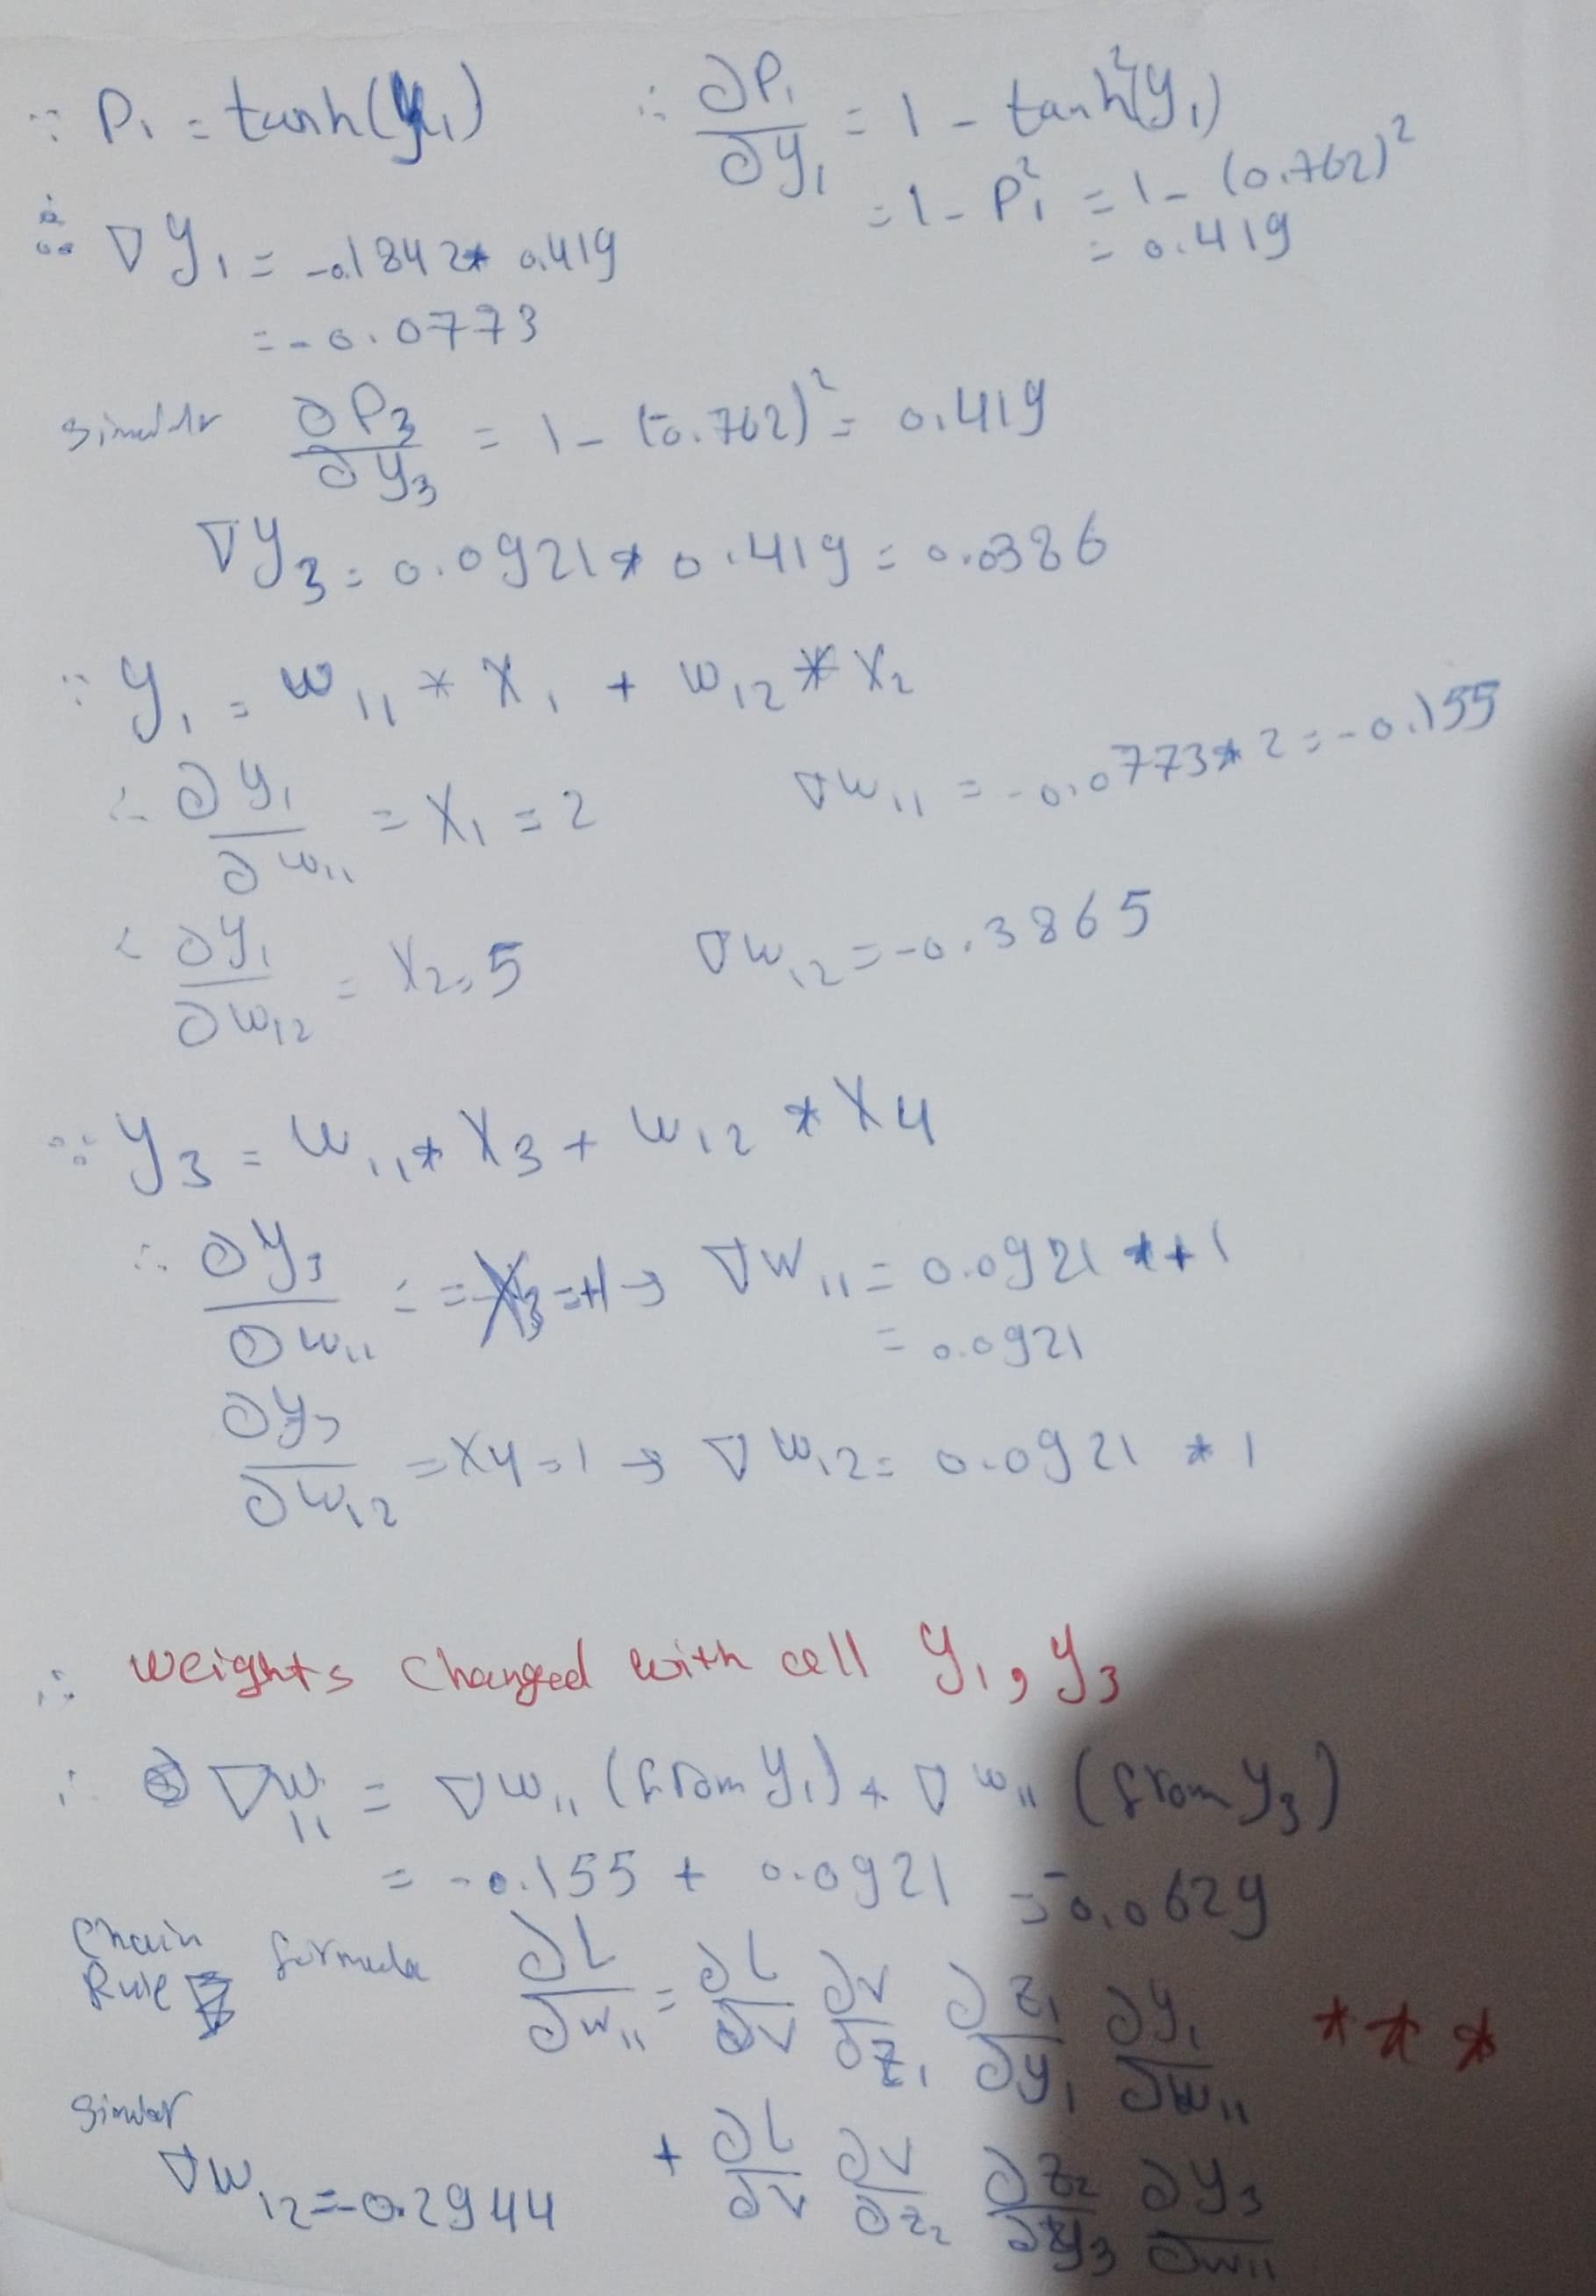 ∵ P₁ = tanh(y₁) ∴ ∂P₁/∂y₁ = 1 - tanh²(y₁)
= 1 - P₁² = 1 - (0.762)²
= 0.419
∴ ∇y₁ = -0.1842 * 0.419
= -0.0773
∂P₃/∂y₃ = 1 - (-0.762)² = 0.419
∇y₃ = 0.0921 * 0.419 = 0.0386
∵ y₁ = w₁₁ * X₁ + w₁₂ * X₂
∴ ∂y₁/∂w₁₁ = X₁ = 2 ∇w₁₁ = -0.0773 * 2 = -0.155
∴ ∂y₁/∂w₁₂ = X₂ = 5 ∇w₁₂ = -0.3865
∵ y₃ = w₁₁ * X₃ + w₁₂ * X₄
∴ ∂y₃/∂w₁₁ = = X₃ = +1 → ∇w₁₁ = 0.0921 * +1
= 0.0921
∂y₃/∂w₁₂ = X₄ = 1 → ∇w₁₂ = 0.0921 * 1
∴ weights changed with cell y₁, y₃
∴ ∇w₁₁ = ∇w₁₁ (from y₁) + ∇w₁₁ (from y₃)
= -0.155 + 0.0921 = -0.0629
Chain Rule formula ∂L/∂w₁₁ = ∂L/∂v ∂v/∂z₁ ∂z₁/∂y₁ ∂y₁/∂w₁₁ ***
+ ∂L/∂v ∂v/∂z₂ ∂z₂/∂y₃ ∂y₃/∂w₁₁
∇w₁₂ = -0.2944